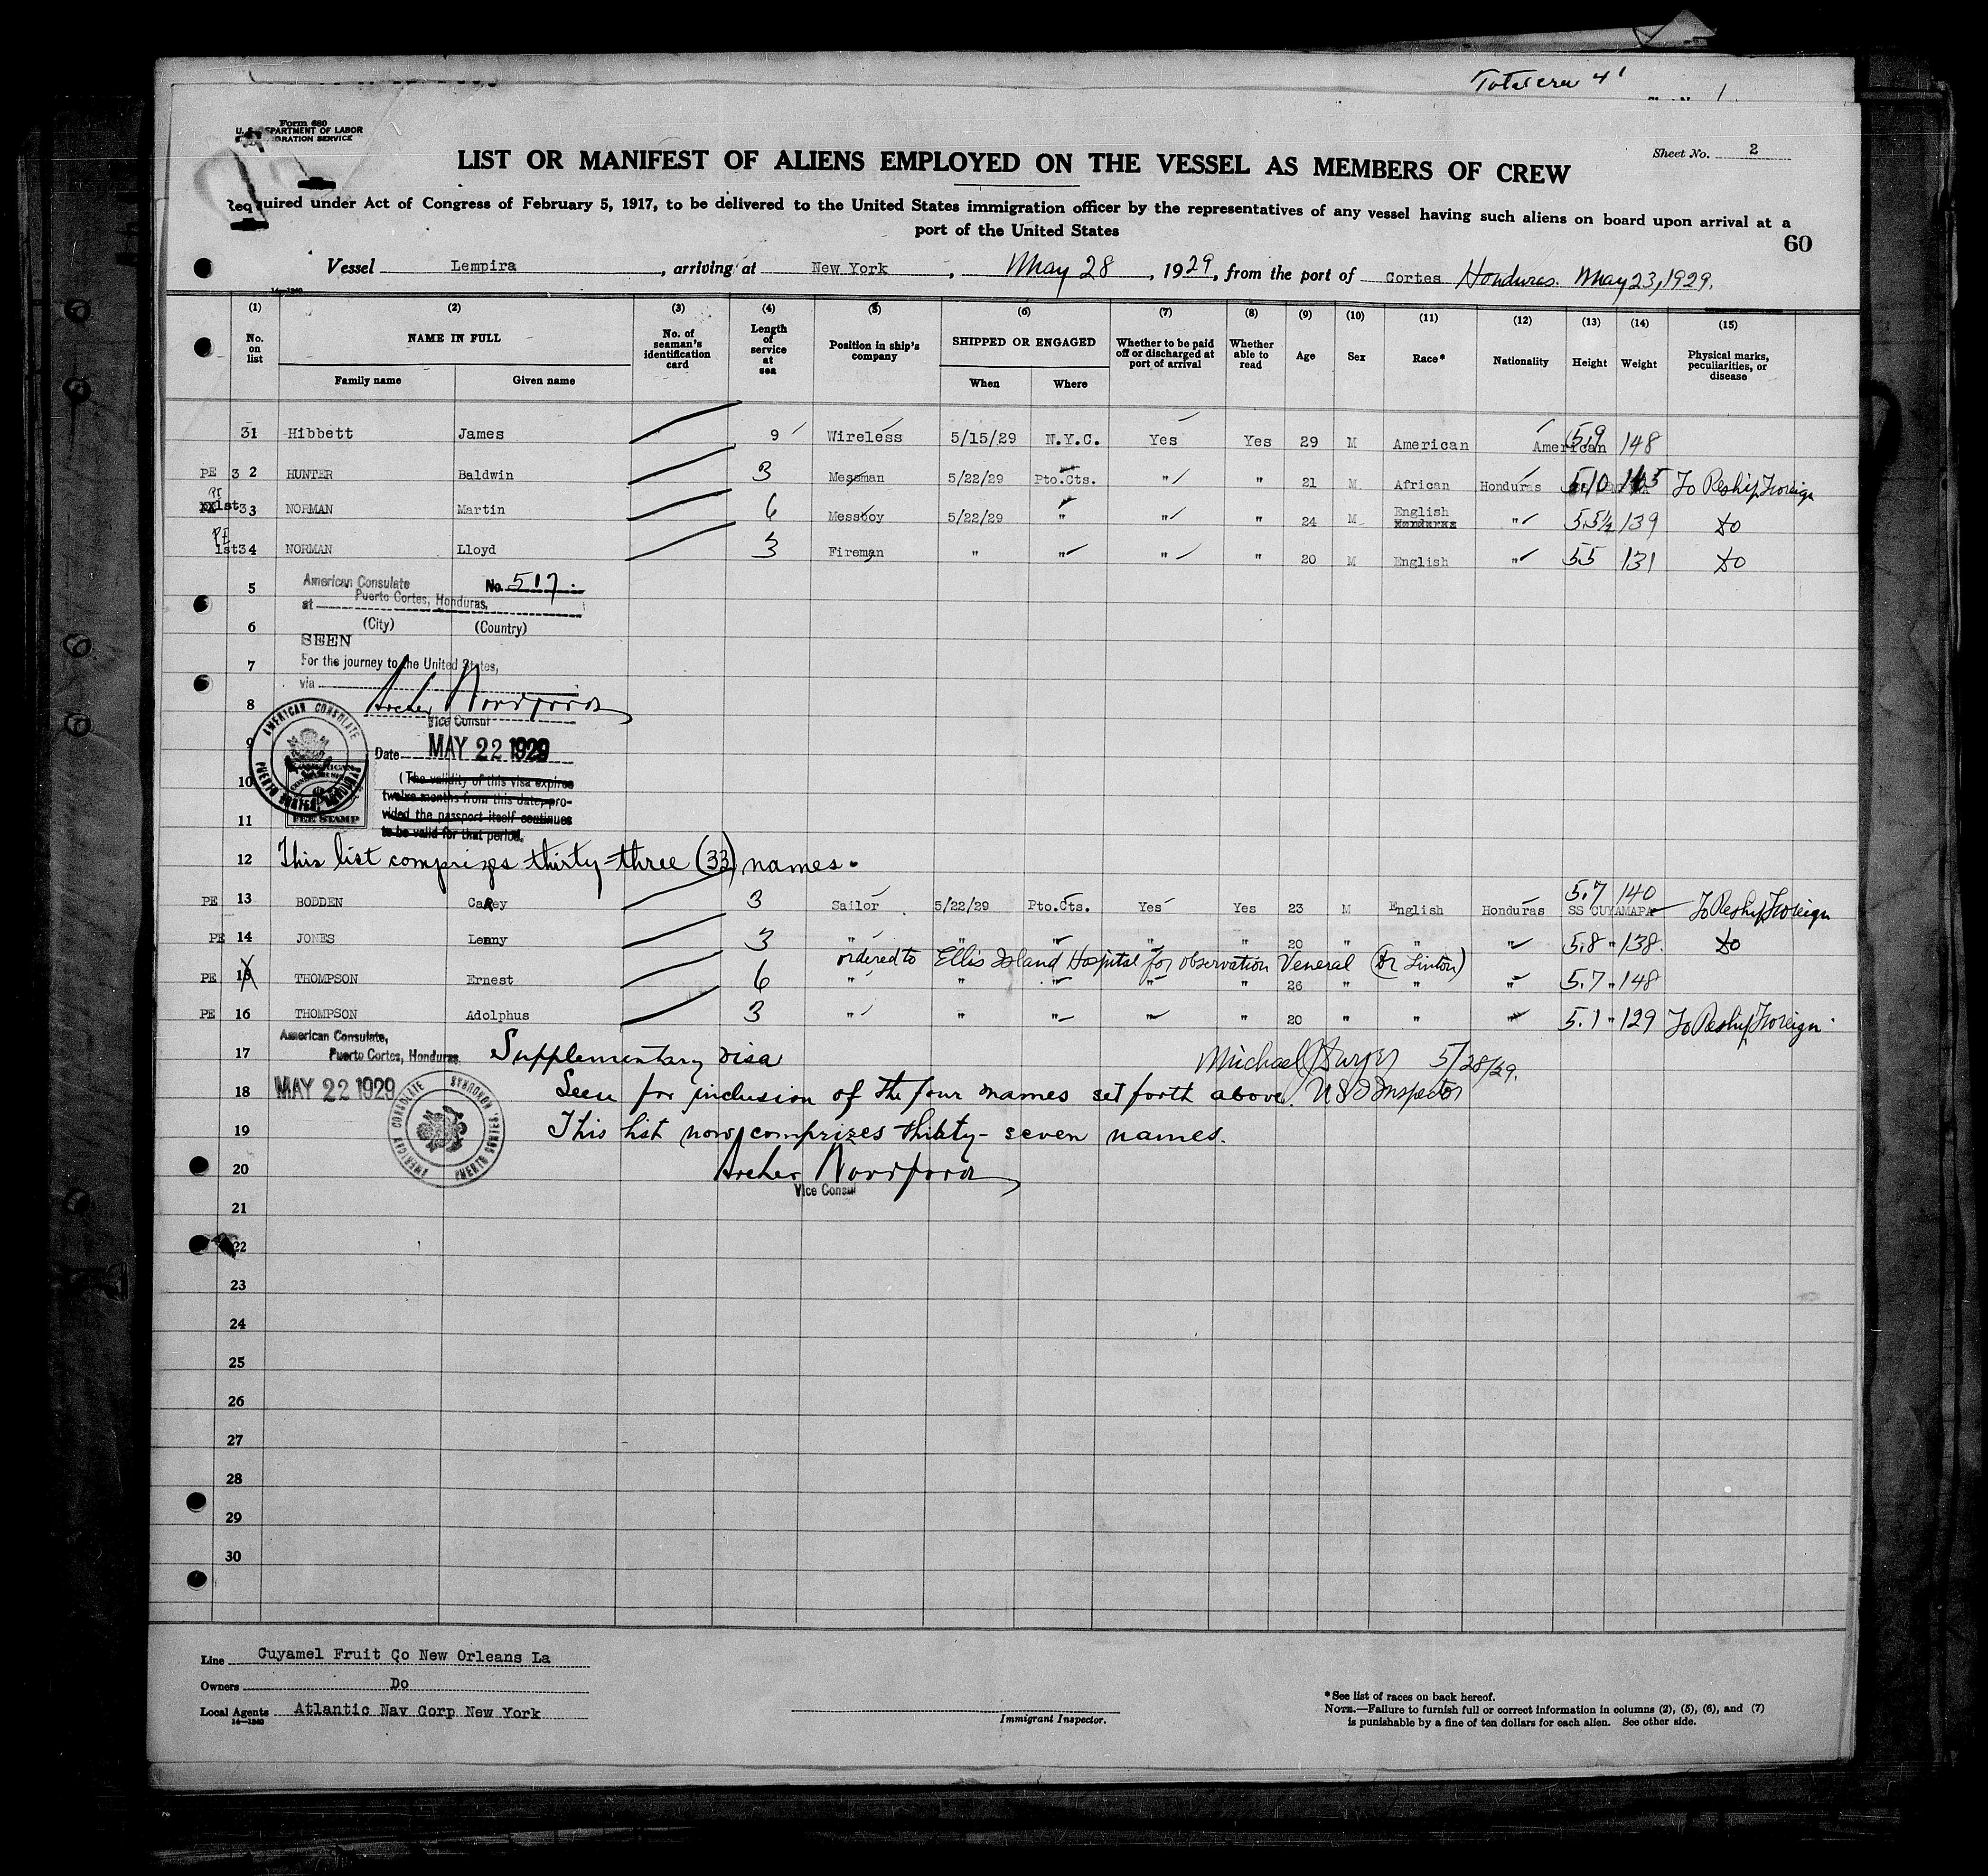 Total crew 41
1
Form 680
U. S. DEPARTMENT OF LABOR
IMMIGRATION SERVICE
Sheet No. 2
LIST OR MANIFEST OF ALIENS EMPLOYED ON THE VESSEL AS MEMBERS OF CREW
Required under Act of Congress of February 5, 1917, to be delivered to the United States immigration officer by the representatives of any vessel having such aliens on board upon arrival at a
port of the United States
60
Vessel Lempira, arriving at New York, May 28, 1929, from the port of Cortes Honduras. May 23, 1929.
14—1240
(1) (2) (3) (4) (5) (6) (7) (8) (9) (10) (11) (12) (13) (14) (15)
No. on list NAME IN FULL No. of seaman's identification card Length of service at sea Position in ship's company SHIPPED OR ENGAGED Whether to be paid off or discharged at port of arrival Whether able to read Age Sex Race* Nationality Height Weight Physical marks, peculiarities, or disease
Family name Given name When Where
31 Hibbett James 9 Wireless 5/15/29 N.Y.C. Yes Yes 29 M American American 5.9 148
PE 32 HUNTER Baldwin 3 Messman 5/22/29 Pto.Cts. " " 21 M African Honduras 5.10 145 To Reship Foreign
1st 33 NORMAN Martin 6 Messboy 5/22/29 " " " 24 M English Honduras " 5.5½ 139 do
PE 1st 34 NORMAN Lloyd 3 Fireman " " " " 20 M English " 5.5 131 do
5 American Consulate No. 517
at Puerto Cortes, Honduras.
6 (City) (Country)
SEEN
7 For the journey to the United States,
via
8 Archer Woodford
Vice Consul
9 Date MAY 22 1929
AMERICAN CONSULATE PUERTO CORTES, HONDURAS
10 (The validity of this visa expires
twelve months from this date, pro-
11 vided the passport itself continues
to be valid for that period.
FEE STAMP
12 This list comprizes thirty-three (33) names.
PE 13 BODDEN Carey 3 Sailor 5/22/29 Pto.Cts. Yes Yes 23 M English Honduras 5.7 140 SS CUYAMAPA To Reship Foreign
PE 14 JONES Lenny 3 " " " " " 20 " " " 5.8 " 138. do
ordered to Ellis Island Hospital for observation Veneral (Dr Linton)
PE 15 THOMPSON Ernest 6 " " " " " 26 " " " 5.7 " 148
PE 16 THOMPSON Adolphus 3 " " " " " 20 " " " 5.1 " 129 To Reship Foreign
American Consulate,
17 Puerto Cortes, Honduras. Supplementary visa Michael 5/28/29.
18 MAY 22 1929 Seen for inclusion of the four names set forth above. U S I Inspector
AMERICAN CONSULATE PUERTO CORTES, HONDURAS
19 This list now comprizes thirty-seven names.
20 Archer Woodford
Vice Consul
21
22
23
24
25
26
27
28
29
30
Line Cuyamel Fruit Co New Orleans La
Owners Do
Local Agents Atlantic Nav Corp New York
14—1240
Immigrant Inspector.
*See list of races on back hereof.
NOTE.—Failure to furnish full or correct information in columns (2), (5), (6), and (7)
is punishable by a fine of ten dollars for each alien. See other side.